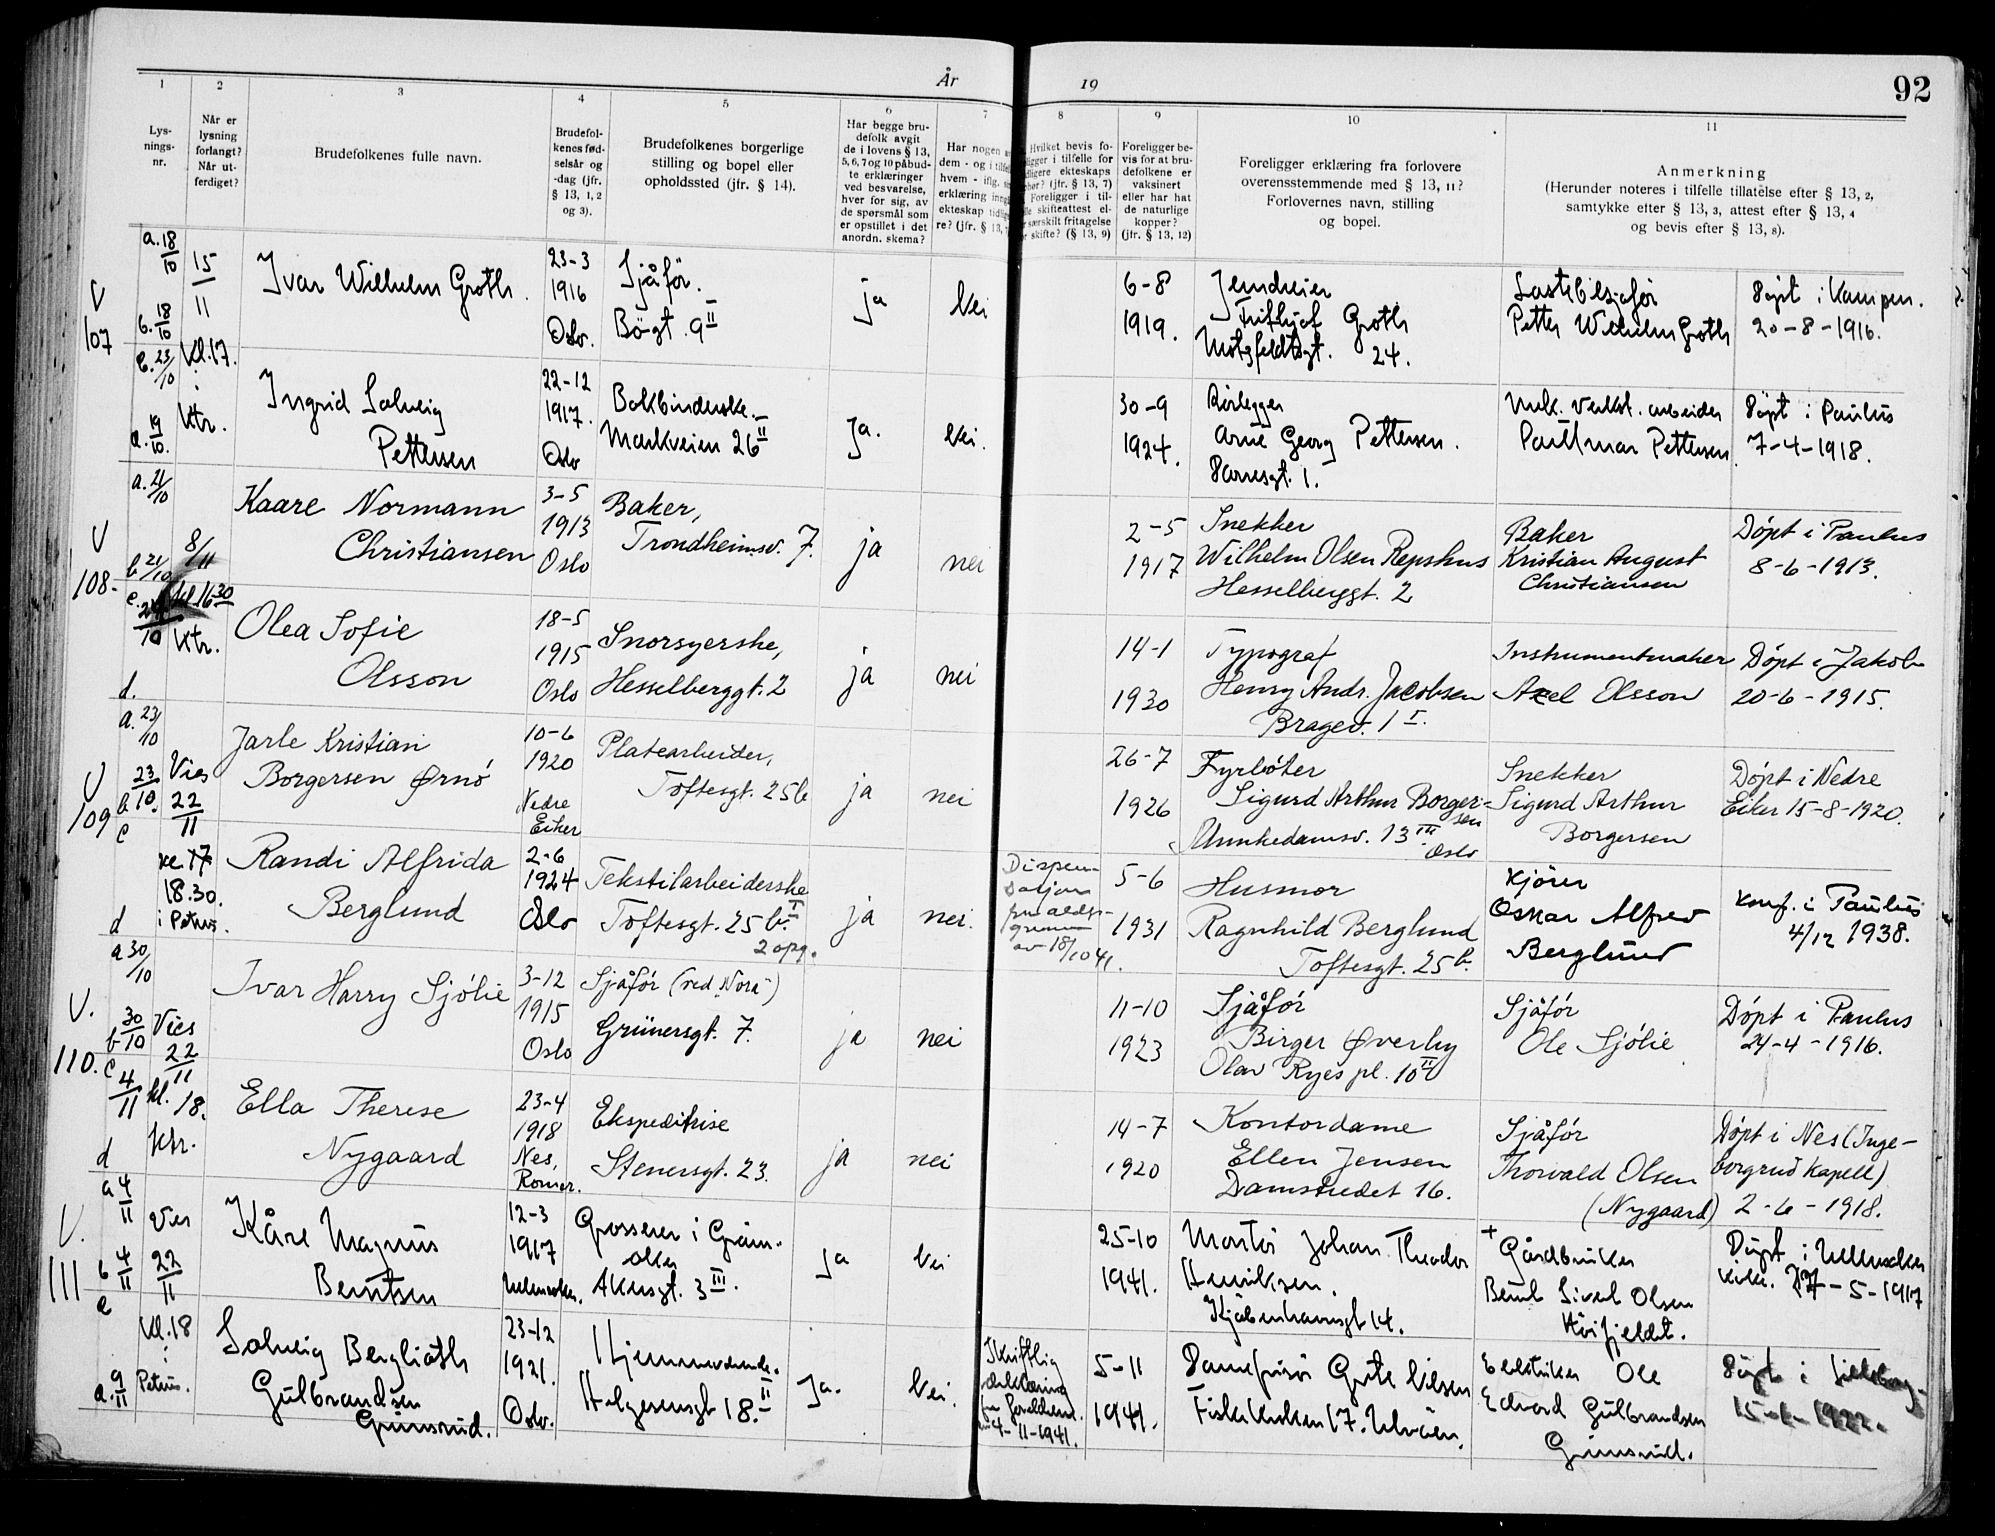 År 19
92
1 2 3 4 5 6 7 8 9 10 11
Lys-
nings-
nr.
Når er
lysning
forlangt?
Når ut-
ferdiget?
Brudefolkenes fulle navn.
Brudefol-
kenes fød-
selsår og
-dag (jfr.
§ 13, 1, 2
og 3).
Brudefolkenes borgerlige
stilling og bopel eller
opholdssted (jfr. § 14).
Har begge bru-
defolk avgit
de i lovens § 13,
5, 6, 7 og 10 påbud-
te erklæringer
ved besvarelse,
hver for sig, av
de spørsmål som
er opstillet i det
anordn. skema?
Har nogen
dem - og i
hvem - iflg.
erklæring
ekteskap
re? (jfr. § 13,
Hvilket bevis fo-
i tilfelle for
ekteskaps
(jfr. § 13, 7)
Foreligger i til-
skifteattest el-
særskilt fritagelse
skifte? (§ 13, 9)
Foreligger be-
vis for at bru-
defolkene er
vaksinert
eller har hat
de naturlige
kopper?
(jfr. § 13, 12)
Foreligger erklæring fra forlovere
overensstemmende med § 13, 11?
Forlovernes navn, stilling
og bopel.
Anmerkning
(Herunder noteres i tilfelle tillatelse efter § 13, 2,
samtykke efter § 13, 3, attest efter § 13, 4
og bevis efter § 13, 8).
V
107
a. 18/10
b. 18/10
c. 23/10
d. 19/10.
15/11
Kl. 17.
i
Ktr.
Ivar Wilhelm Groth.
23-3
1916
Oslo.
Sjåför.
Bögt. 9 II
ja
Nei
6-8
1919.
Frithjof Groth
Motzfeldtsgt. 24.
Lastebilsjåför
Petter Wilhelm Groth
Döpt i Kampen.
20-8-1916.
Ingrid Solveig
Pettersen
22-12
1917.
Oslo
Bokbinderske.
Markveien 26 II
Ja.
Nei.
30-9
1924.
Rörlegger
Arne Georg Pettersen.
Mek. verkst. arbeider
Paul Imar Pettersen.
Döpt i Paulus
7-4-1918.
V
108.
a. 21/10
b 21/10
c. 24/10
d.
8/11
kl 16 30
Ktr.
Kaare Normann
Christiansen
3-5
1913
Oslo
Baker,
Trondheimsv. 7.
ja
nei
2-5
1917
Snekker
Wilhelm Olsen Repshus
Hesselberggt. 2
Baker
Kristian August
Christiansen
Döpt i Paulus
8-6-1913.
Olea Sofie
Olsson
18-5
1915
Oslo
Snorsyerske,
Hesselberggt. 2
ja
nei
14-1
1930
Typograf
Henry Andr. Jacobsen
Bragev. 1 I.
Instrumentmaker
Axel Olsson
Döpt i Jakob
20-6-1915.
V
109
a. 23/10
b 23/10.
c
d
Vies
22/11
kl 17
18.30.
i Petrus.
Jarle Kristian
Borgersen Ørnö
10-6
1920
Nedre
Eiker
Platearbeider,
Toftesgt. 25b
ja
nei
26-7
1926
Fyrböter
Sigurd Arthur Borger-
sen
Munkedamsv. 13 III
Oslo
Snekker
Sigurd Arthur
Borgersen
Döpt i Nedre
Eiker 15-8-1920.
Randi Alfrida
Berglund
2-6
1924
Oslo
Tekstilarbeiderske
Toftesgt. 25 b. I
2 opg.
ja
nei.
Dispen-
sasjon
fra alders-
grensen
av 18/10 41.
5-6
1931
Husmor
Ragnhild Berglund
Toftesgt. 25 b.
Kjörer
Oskar Alfred
Berglund
Konf. i Paulus
4/12 1938.
V.
110.
a 30/10
b 30/10
c 4/11
d
Vies
22/11
kl. 18.
Ktr.
Ivar Harry Sjölie
3-12
1915
Oslo
Sjåför (ved „Nora")
Grünersgt. 7.
ja
nei
11-10
1923
Sjåför
Birger Øverby
Olav Ryes pl. 10 II
Sjåför
Ole Sjölie
Döpt i Paulus
24-4-1916.
Ella Therese
Nygaard
23-4
1918
Nes,
Romer.
Ekspeditrise
Stenersgt. 23.
ja
nei
14-7
1920
Kontordame
Ellen Jensen
Damstredet 16.
Sjåför
Thorvald Olsen
(Nygaard)
Döpt i Nes (Inge-
borgrud kapell)
2-6-1918.
V.
111
a 4/11
b 4/11
c
d. 9/11
Vies
22/11
Kl. 18
i
Petrus.
Kåre Magnus
Berntsen
12-3
1917
Grosserer i Gram-
Akersgt. 3 III.
Ja
Nei
25-10
1941.
Montör Johan Theodor
Henriksen.
Kjöbenhavnsgt 14.
+
Gårdbruker
Bernt Sivert Olsen
Döpt i
kirke. 27-5-1917
Solveig Berglioth
Gulbrandsen
Grimsrud.
23-12
1921.
Oslo.
Hjemmeværende.
Helgesensgt 18. II
Ja.
Nei.
Skriftlig
erklæring
fra foreldrene.
4-11-1941.
5-11
1941.
Damefrisör Grete Nilsen
Elektriker Ole
Edvard Gulbrandsen
Grimsrud.
Döpt i